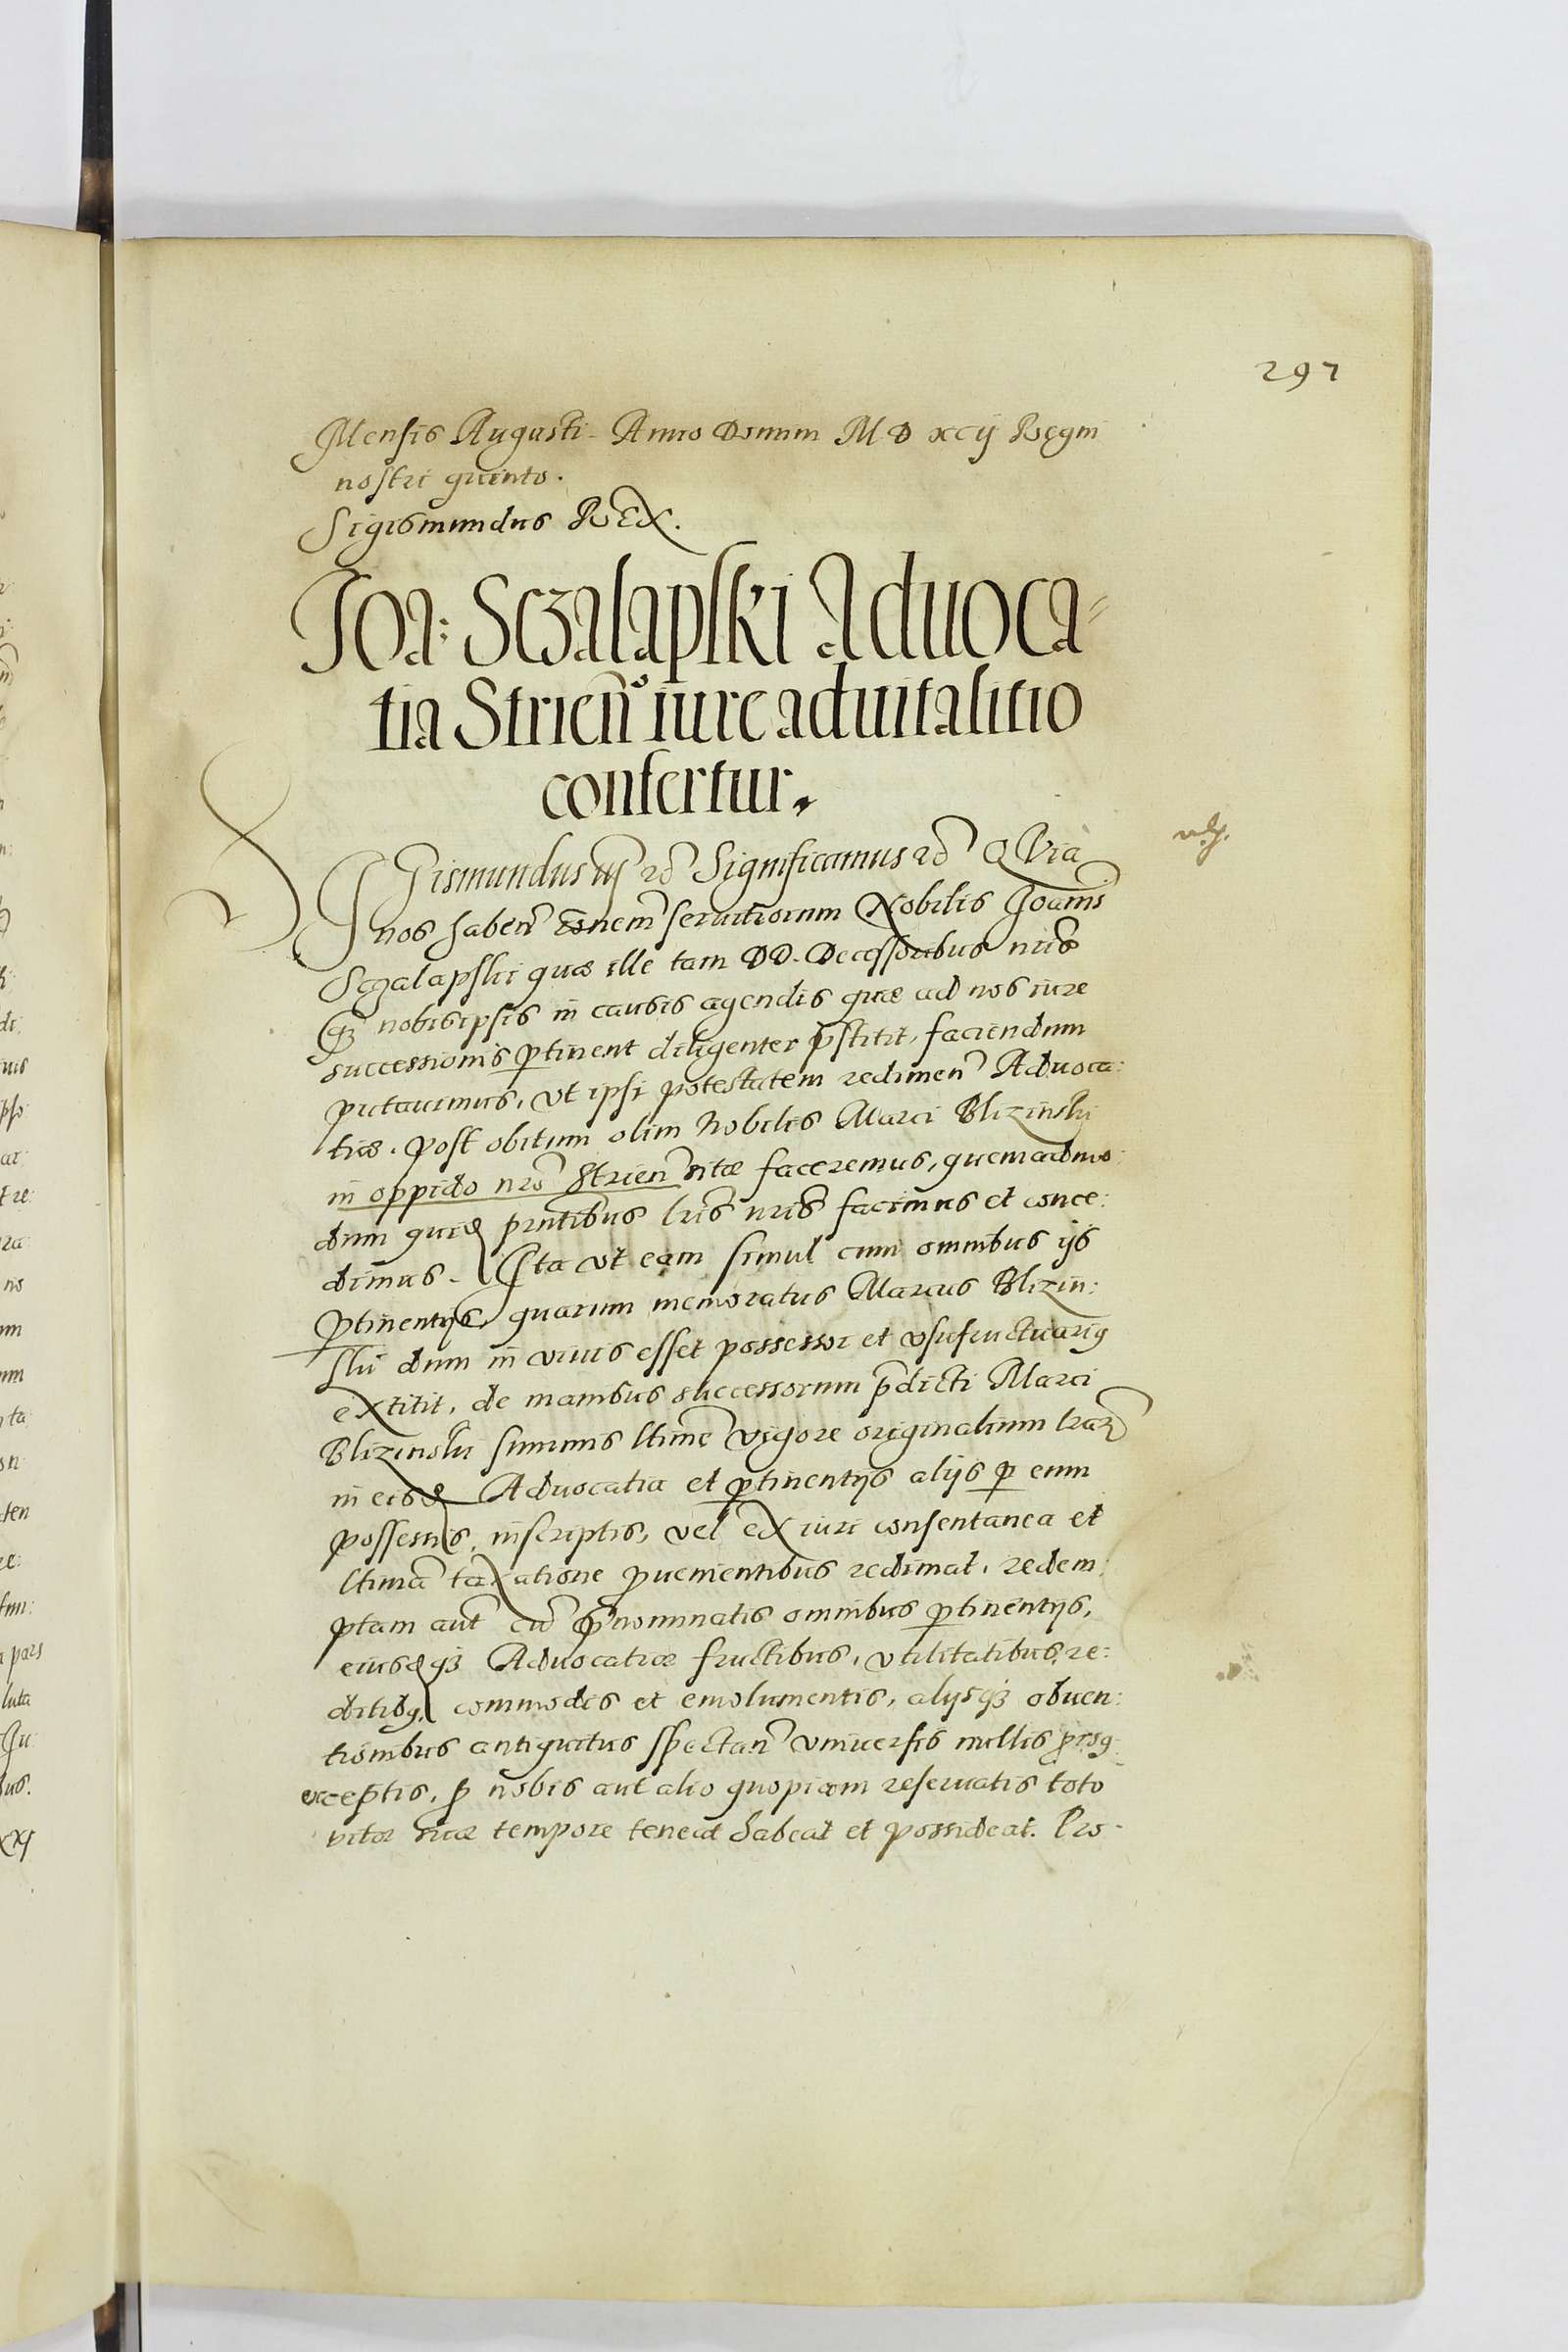 297
Mensis Augusti Anno Domini M D xcij Regni
nostri quinto.
Sigismundus REX.
Ioa: Sczalapski Aduoca=
tia Strień iure aduitalitio
confertur.
SIgismundus iij etc̃ Significamus etc̃ QVia
nos habeñ rõnem seruitiorum Nobilis Joannis
Sczalapski quæ ille tam DD. Decessoribus nris̃
qȝ nobisipsis in causis agendis quæ ad nos iure
successionis ptinent diligenter p̃stitit, faciendum
putauimus, vt ipsi potestatem redimeñ Aduoca:
tiæ. post obitum olim Nobilis Marci Blizinski
in oppido nrõ Strieñ sitæ faceremus, quemadmo:
dum quidẽ pñtibus lris̃ nris̃ facimus et conce:
dimus. Ita vt eam simul cum omnibus ijs
ptinentijs, quarum memoratus Marcus Blizin:
ski dum in viuis esset possessor et vsufructuariꝯ
extitit, de manibus successorum p̃dicti Marci
Blizinski summis ltime vigore originalium lrar̃
in eisdẽ Aduocatia et ptinentijs alijs p eum
possessis, inscriptis, vel ex iuri consentanea et
ltima taxatione puenientibus redimat, redem:
ptam aut̃ cũ p̃nominatis omnibus ptinentijs,
eiusdqȝ Aduocatiæ fructibus, vtilitatibus, re:
ditibꝯ, commodis et emolumentis, alijsqȝ obuen:
tionibus antiquitus spectañ vniuersis nullis prorsꝯ
exceptis, p nobis aut alio quopiam reseruatis toto
vitæ suæ tempore teneat habeat et possideat. Pro